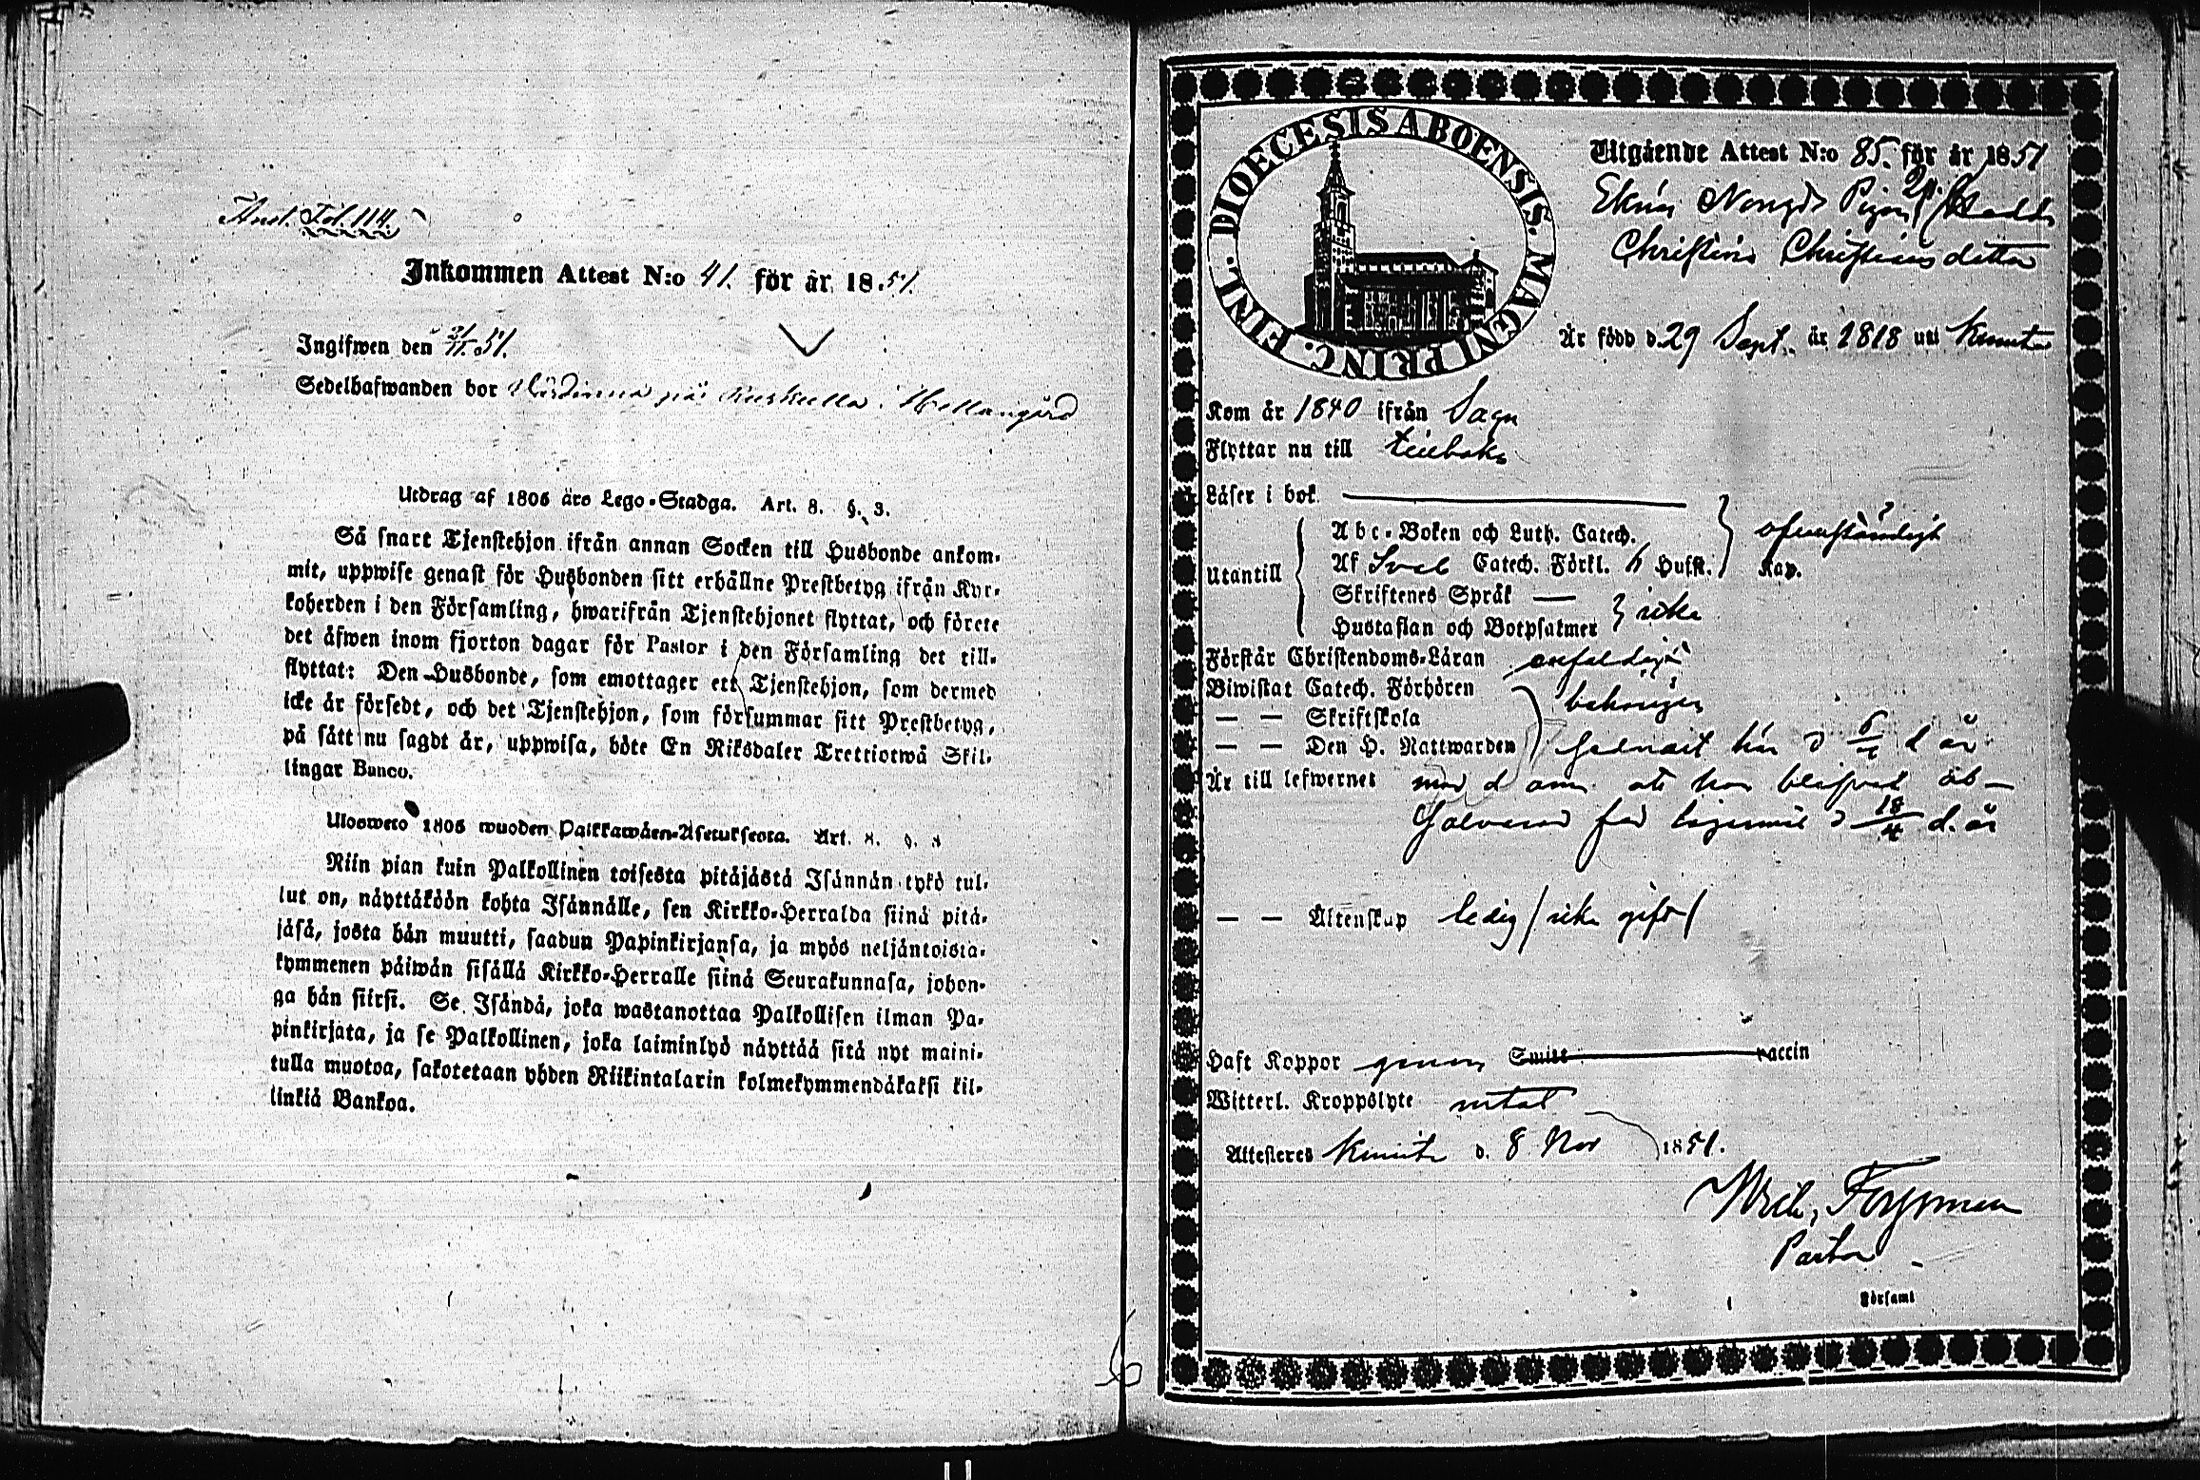 Anot. Fol. 114.
Inkommen Attest N:o 41. för år 1851.
Ingifwen den 21/11 51.
Sedelhafwanden bor på
Utdrag af 1805 års Lego-Stadga. Art. 8. §. 3.
Så snart Tjenstehjon ifrån annan Socken till Husbonde ankom-
mit, uppwise genast för Husbonden sitt erhållne Prestbetyg ifrån Kyr-
koherden i den Församling, hwarifrån Tjenstehjonet flyttat, och förete
det äfwen inom fjorton dagar för Pastor i den Församling det till-
flyttat: Den Husbonde, som emottager ett Tjenstehjon, som dermed
icke är försedt, och det Tjenstehjon, som försummar sitt Prestbetyg,
på sätt nu sagdt är, uppwisa, böte En Riksdaler Trettiotwå Skil-
lingar Banco.
Ulosweto 1805 wuoden Palkkawäen-Asetuksesta. Art. 8. §. 3
Niin pian kuin Palkollinen toisesta pitäjästä Isännän tykö tul-
lut on, näyttäköön kohta Isännälle, sen Kirkko-Herralda siinä pitä-
jäsä, josta hän muutti, saadun Papinkirjansa, ja myös neljäntoista-
kymmenen päiwän sisällä Kirkko-Herralle siinä Seurakunnasa, johon-
ga hän siirsi. Se Isändä, joka wastanottaa Palkollisen ilman Pa-
pinkirjata, ja se Palkollinen, joka laiminlyö näyttää sitä nyt maini-
tulla muotoa, sakotetaan yhden Riikintalarin kolmekymmendäkaksi kil-
linkiä Bankoa.
DIOECESIS ABOENSIS. MAGNI PRINC. FINL.
Utgående Attest N:o 85. för år 1851
Pigan
Christina Christiansdotter
Är född d. 29 Sept. år 1818 uti Kimito
Kom år 1840 ifrån Sagu
Flyttar nu till
Läser i bok
Utantill
Abc-Boken och Luth. Catech.
Af Sveb Catech. Förkl. 6 Hufst. Kap.
Skriftenes Språk —
Hustaflan och Botpsalmer icke
Förstår Christendoms-Läran enfaldigt
Biwistat Catech. Förhören behörigen
— — Skriftskola
— — Den H. Nattwarden
Är till lefwernet
— — Äktenskap ledig / icke gift /
Haft Koppor Smitt Vaccin
Witterl. Kroppslyte
Attesteres Kimito d. 8 Nov 1851.
Pastor
Församl